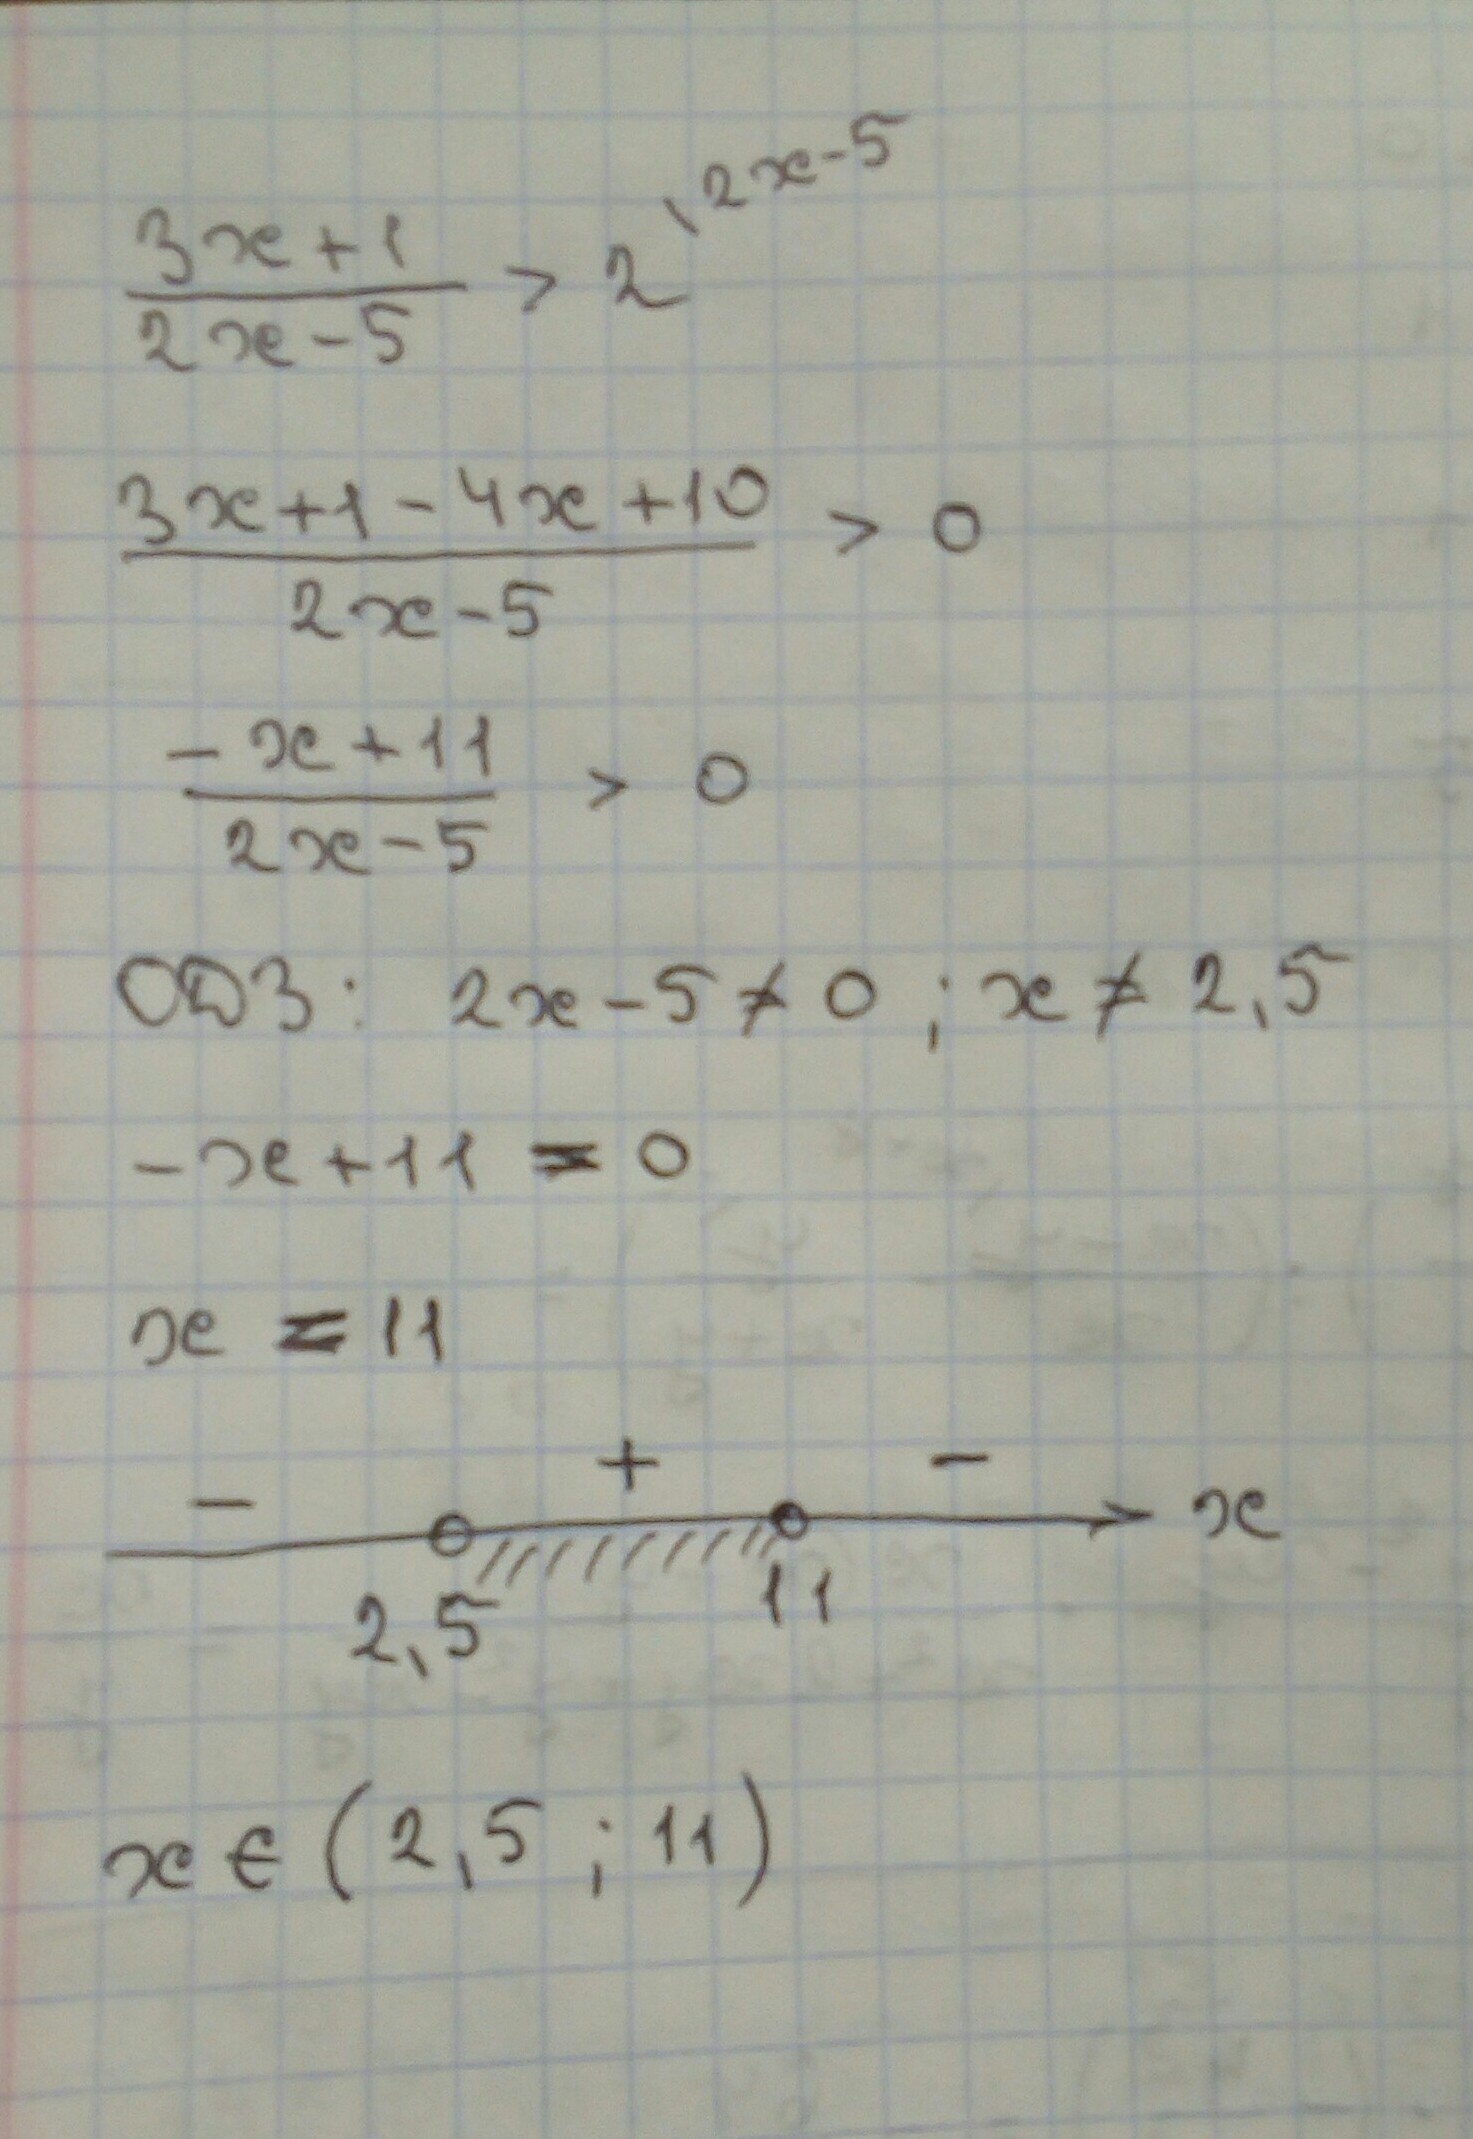 3x+1
―――― > 2 \2x-5
2x-5
3x+1-4x+10
―――――――― > 0
2x-5
-x+11
―――― > 0
2x-5
ОДЗ: 2x-5≠0 ; x≠2,5
-x+11=0
x=11
- + - x
2,5 11
x∈(2,5;11)